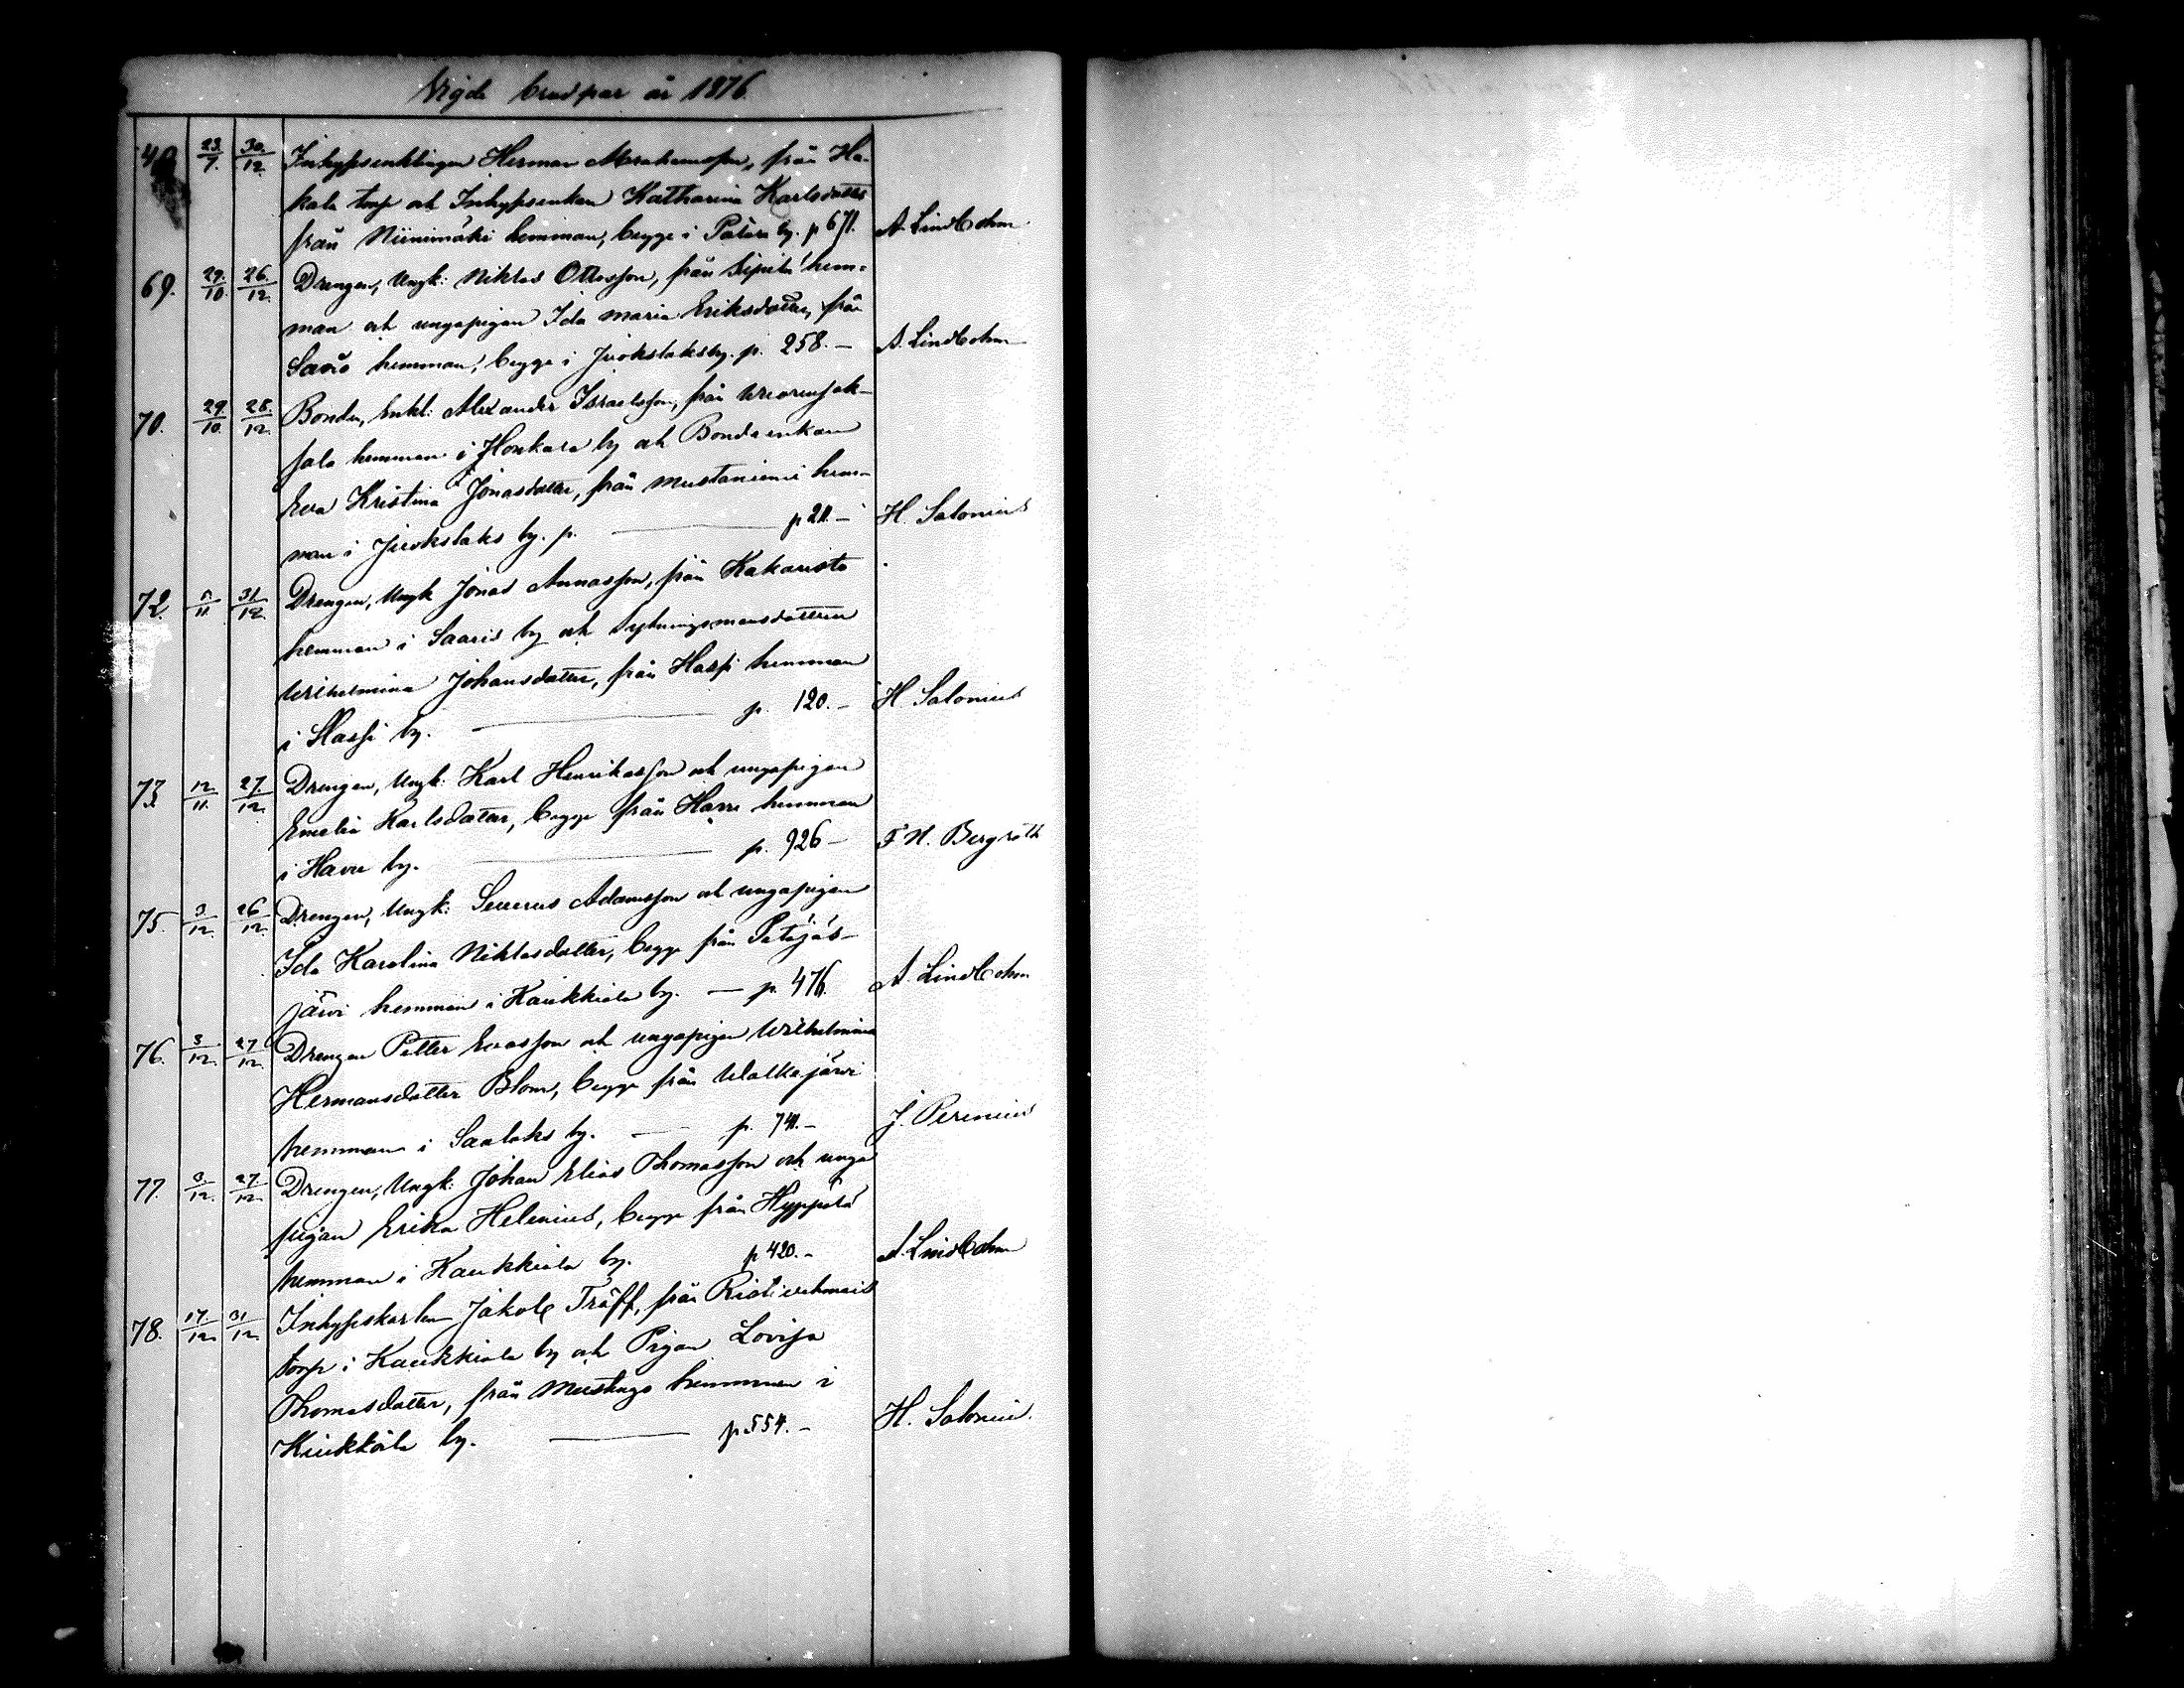 Vigde brudpar år 1876.
49 23/7. 30./12. Inhysenklingen Herman Abrahamsson, från Ha-
kala torp och Inhysenkan Katharina Karlsdotter
från Niinimäki hemman, begge i Pätära by. p 671. A. Lindbohm
69. 29./10. 26./12. Drengen, Ungk: Niklas Ottosson, från Sipilä hem-
man och ungapigan Ida Maria Eriksdotter, från
Savio hemman, begge i Juokslaks by. p. 258.— A. Lindbohm
70. 29./10. 28./12. Bonden, Enkl: Alexander Israelsson, från
jala hemman i Honkala by och Bondeenkan
Eva Kristina Jonasdotter, från Mustaniemi hem-
man i Juokslaks by. p. — p 211.— H. Salonius
72. 5/11. 31./12. Drengen, Ungk Jonas Annasson, från Kakaristo
hemman i Saaris by och Sytningsmansdottren
Wilhelmina Johansdotter, från Hassi hemman
i Hassi by. — p. 120.— H Salonius
73. 12./11. 27./12. Drengen, Ungk: Karl Henriksson och ungapigan
Emelia Karlsdotter, begge från Harre hemman
i Havu by. — p. 926— F. H. Bergroth
75. 3./12. 26/12. Drengen, Ungk: Severus Adamsson och ungapigan
Ida Karolina Niklasdotter, begge från Petäjäs-
järvi hemman i Kaukkiala by. — p. 476. A. Lindbohm
76. 3./12. 27/12. Drengen Petter Evasson och ungapigan Wilhelmina
Hermansdotter Blom, begge från Walkajärvi
hemman i Saalaks by. — p. 741.— J. Perenius
77. 3/12. 27/12. Drengen, Ungk: Johan Elias Thomasson och unga
pigan Erika Helenius, begge från Hyppölä
hemman i Kaukkiala by. p 420.— A. Lindbohm
78. 17./12. 31/12. Inhyseskarlen Jakob Träff, från
torp i Kaukkiala by och Pigan Lovisa
Thomasdotter, från Mustugo hemman i
Kiukkola by. — p 554.— H. Salonius.